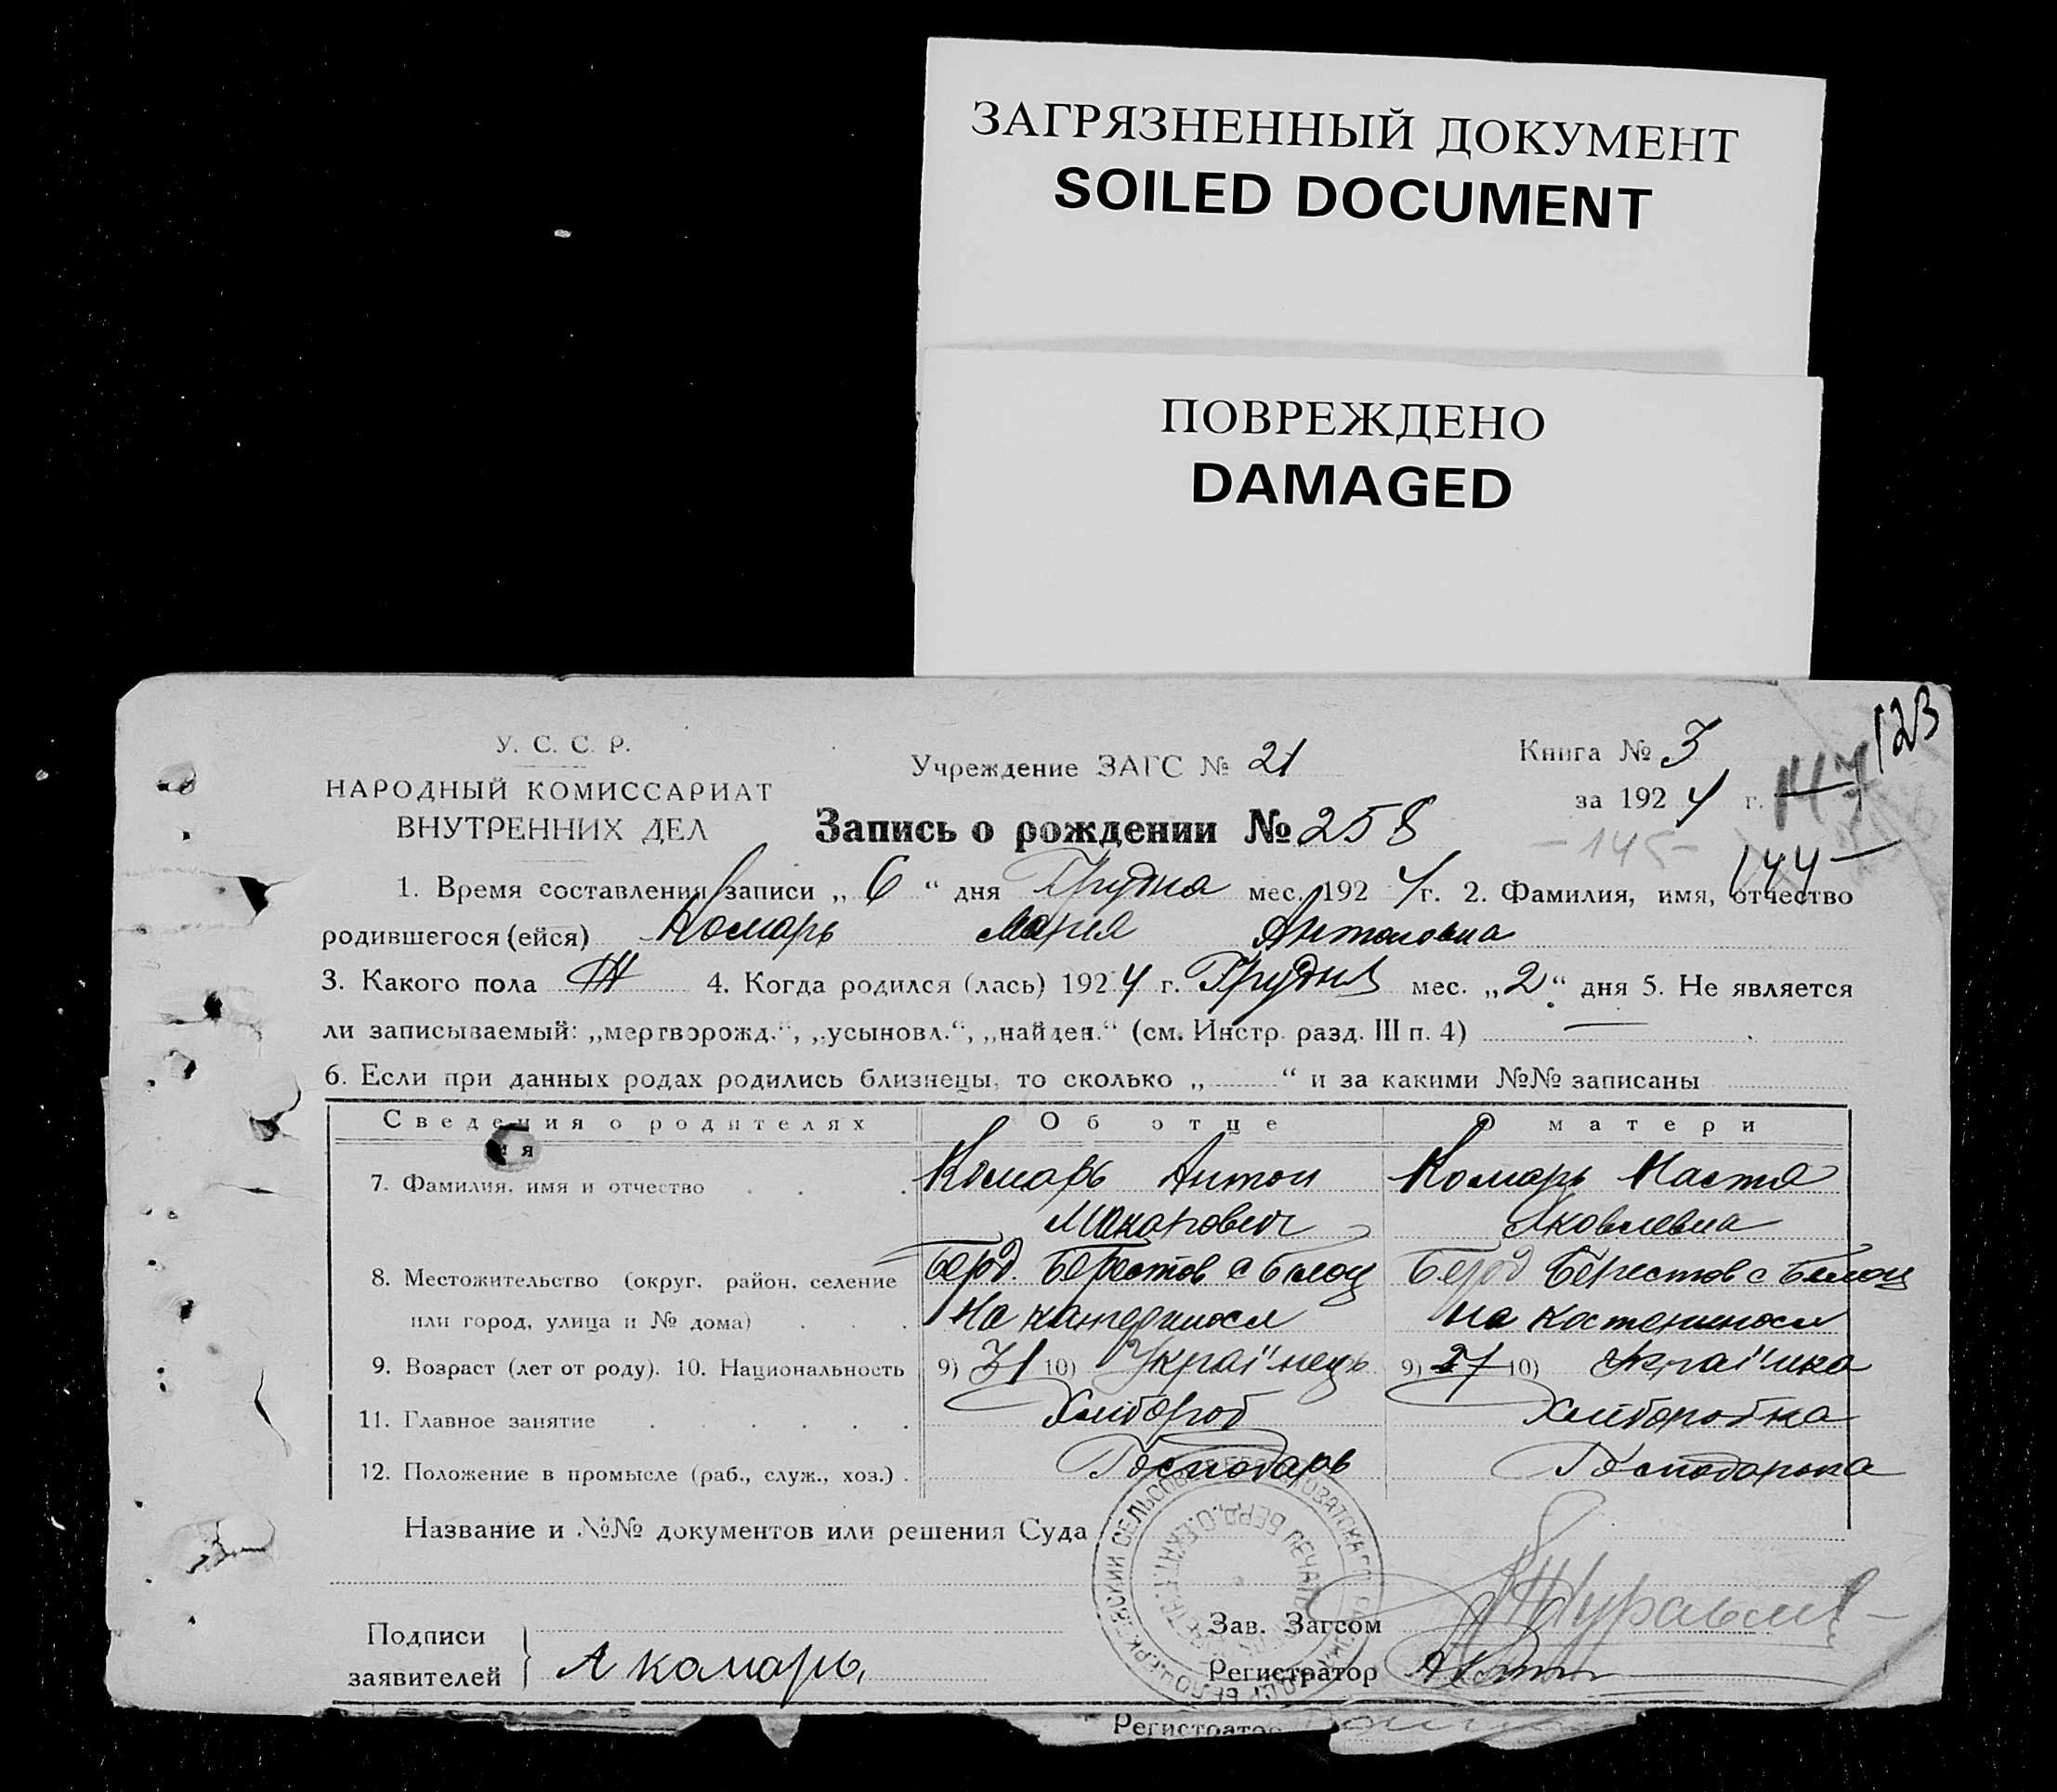 ЗАГРЯЗНЕННЫЙ ДОКУМЕНТ
SOILED DOCUMENT
ПОВРЕЖДЕНО
DAMAGED
123
У. С. С. Р.
НАРОДНЫЙ КОМИССАРИАТ
ВНУТРЕННИХ ДЕЛ
Учреждение ЗАГС № 21
Книга № 3
за 1924 г. 147
Запись о рождении № 258
-145-
144-
1. Время составления записи „ 6 “ дня Грудня мес. 1924 г. 2. Фамилия, имя, отчество
родившегося (ейся) Комарь Мария Антоновна
3. Какого пола Ж 4. Когда родился (лась) 1924 г. Грудня мес. „2“ дня 5. Не является
ли записываемый: „мертворожд.“, „усыновл.“, „найден.“ (см. Инстр. разд. III п. 4) —
6. Если при данных родах родились близнецы, то сколько „ “ и за какими №№ записаны
Сведения о родителях Об отце О матери
7. Фамилия, имя и отчество Комарь Антон Комарь Настя
Макарович Яковлевна
8. Местожительство (округ, район, селение Берд. Берестов с Белоц Берд Берестов с Белоц
или город, улица и № дома) На на
9. Возраст (лет от роду). 10. Национальность 9) 31 10) Украї'нець 9) 27 10) Украї'нка
11. Главное занятие Хлибороб Хлиборобка
12. Положение в промысле (раб., служ., хоз.) Господарь Господарька
Название и №№ документов или решения Суда
Подписи
заявителей } А комарь,
Зав. Загсом
Регистратор
Регистратор